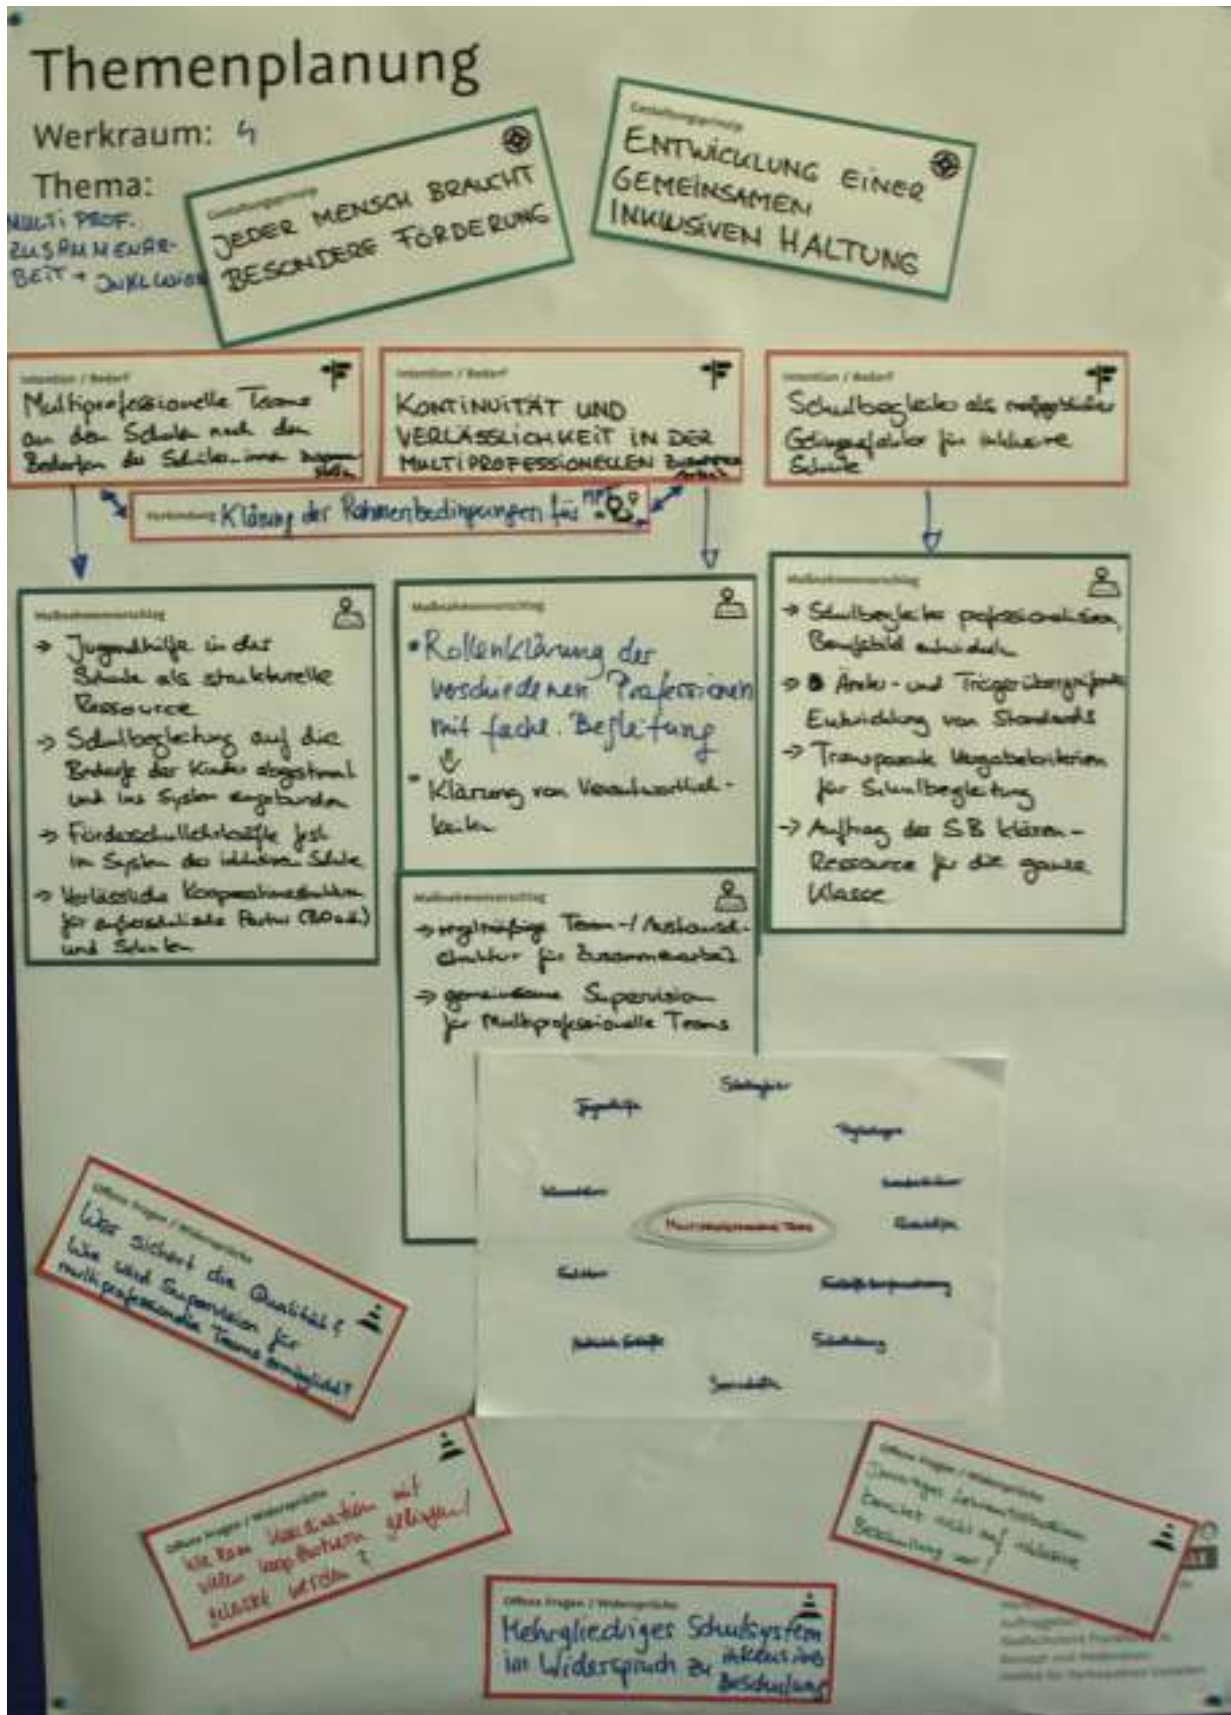 Themenplanung
Werkraum: 4
Thema:
MULTI PROF.
ZUSAMMENAR-
BEIT + INKLUSION
Gestaltungsprinzip
JEDER MENSCH BRAUCHT
BESONDERE FÖRDERUNG
Gestaltungsprinzip
ENTWICKLUNG EINER
GEMEINSAMEN
INKLUSIVEN HALTUNG
Intention / Bedarf
Multiprofessionelle Teams
an den Schulen nach den
Bedarfen der Schüler_innen
Intention / Bedarf
KONTINUITÄT UND
VERLÄSSLICHKEIT IN DER
MULTIPROFESSIONELLEN Zusammen
arbeit
Intention / Bedarf
Schulbegleiter als maßgeblicher
Gelingensfaktor für inklusive
Schule
Verbindung Klärung der Rahmenbedingungen für MPT
Maßnahmenvorschlag
→ Jugendhilfe in der
Schule als strukturelle
Ressource
→ Schulbegleitung auf die
Bedarfe der Kinder abgestimmt
und ins System eingebunden
→ Förderschullehrkräfte fest
im System der inklusiven Schule
→ Verlässliche Kooperationsstrukturen
für außerschulische Partner
und Schulen
Maßnahmenvorschlag
• Rollenklärung der
verschiedenen Professionen
mit fachl. Begleitung
• Klärung von Verantwortlich-
keiten
Maßnahmenvorschlag
→ regelmäßige Team-/Austausch-
struktur für Zusammenarbeit
→ gemeinsame Supervision
für Multiprofessionelle Teams
Maßnahmenvorschlag
→ Schulbegleiter professionalisieren,
Berufsbild entwickeln
→ Ämter- und Trägerübergreifende
Entwicklung von Standards
→ Transparente Vergabekriterien
für Schulbegleitung
→ Auftrag der SB klären -
Ressource für die ganze
Klasse
Schulbegleiter
Jugendhilfe
Psychologen
MULTIPROFESSIONELLE TEAMS
Schulleitung
Offene Fragen / Widersprüche
Wer sichert die Qualität?
Wie wird Supervision für
multiprofessionelle Teams ermöglicht?
Offene Fragen / Widersprüche
Wie kann Koordination mit
vielen Koop.Partnern gelingen/
geleistet werden?
Offene Fragen / Widersprüche
Mehrgliedriges Schulsystem
im Widerspruch zu inklusive
Beschulung
Offene Fragen / Widersprüche
bereitet nicht auf inklusive
Beschulung vor!
Auftraggeber